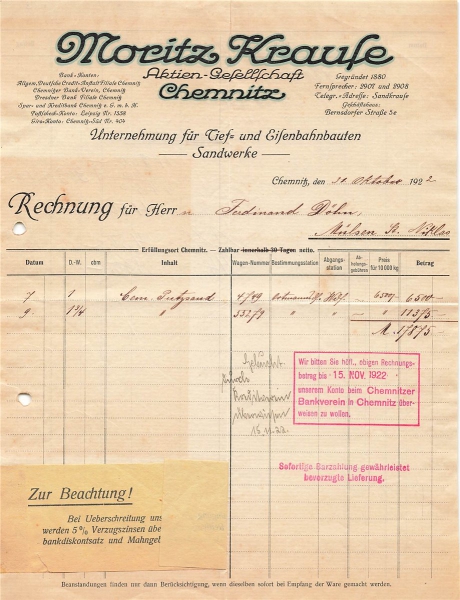 Moritz Krause
Aktien-Gesellschaft
Chemnitz
Bank-Konten:
Allgem. Deutsche Credit-Anstalt Filiale Chemnitz
Chemnitzer Bank-Verein, Chemnitz
Dresdner Bank Filiale Chemnitz
Spar- und Kreditbank Chemnitz e. G. m. b. H.
Postscheck-Konto: Leipzig Nr. 1558
Giro-Konto: Chemnitz-Süd Nr. 404
Gegründet 1880
Fernsprecher: 2901 und 2908
Telegr.-Adresse: Sandkrause
Geschäftshaus:
Bernsdorfer Straße 5e
Unternehmung für Tief- und Eisenbahnbauten
Sandwerke
Chemnitz, den 31 Oktober 1922
Rechnung für Herrn Ferdinand Döhn,
Mülsen St. Niklas
Erfüllungsort Chemnitz. – Zahlbar innerhalb 10 Tagen netto.
Datum D.-W. cbm Inhalt Wagen-Nummer Bestimmungsstation Abgangsstation Abholungsgebühren Preis für 10 000 kg Betrag
7 1 Cem. Putzsand 4769 6500 6500
9 1¾ " 53279 " " " 11375
M. 17875
Wir bitten Sie höfl., obigen Rechnungs-
betrag bis 15. NOV. 1922
unserem Konto beim Chemnitzer
Bankverein in Chemnitz über-
weisen zu wollen.
15.11.22.
Sofortige Barzahlung gewährleistet
bevorzugte Lieferung.
Zur Beachtung!
Bei Ueberschreitung un
werden 5% Verzugszinsen übe
bankdiskontsatz und Mahngel
Beanstandungen finden nur dann Berücksichtigung, wenn dieselben sofort bei Empfang der Ware gemacht werden.